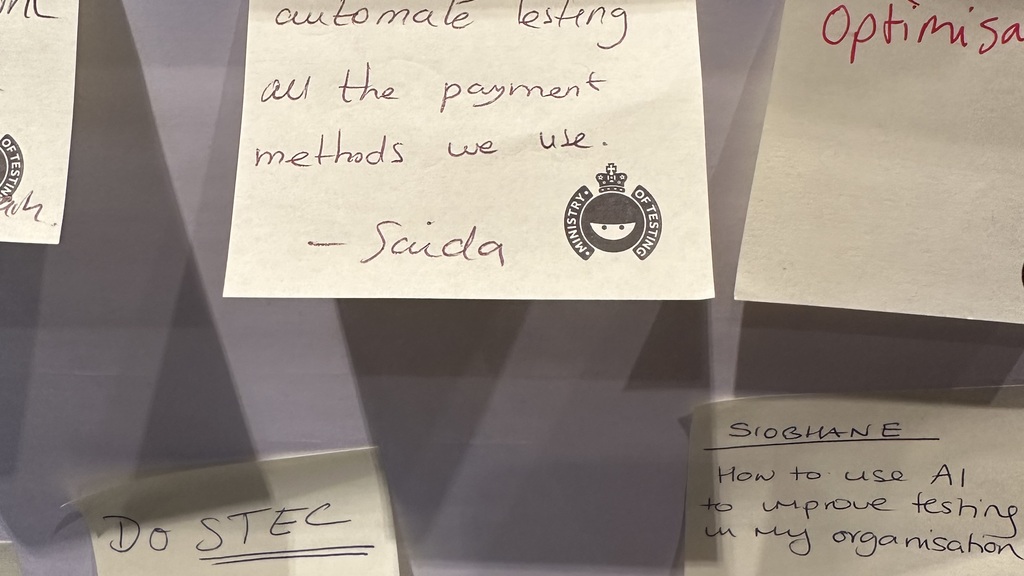 automate testing
all the payment
methods we use.
- Saida
MINISTRY OF TESTING
Optimisa
OF TESTIN
Do STEC
SIOBHANE
How to use AI
to improve testing
in my organisation